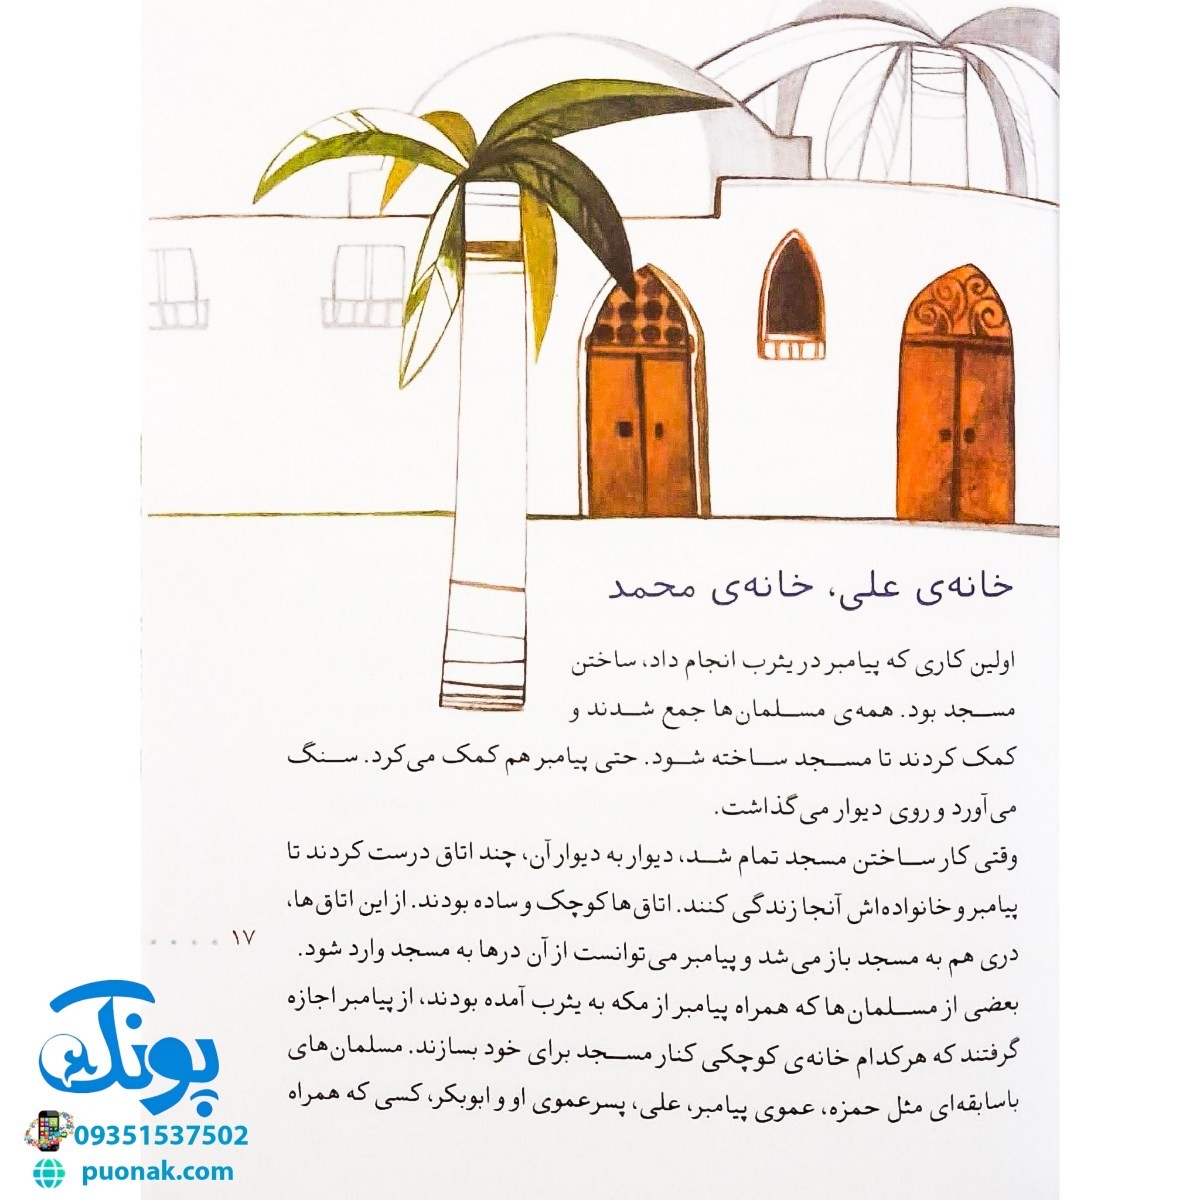 خانه‌ی علی، خانه‌ی محمد
اولین کاری که پیامبر در یثرب انجام داد، ساختن
مسجد بود. همه‌ی مسلمان‌ها جمع شدند و
کمک کردند تا مسجد ساخته شود. حتی پیامبر هم کمک می‌کرد. سنگ
می‌آورد و روی دیوار می‌گذاشت.
وقتی کار ساختن مسجد تمام شد، دیوار به دیوار آن، چند اتاق درست کردند تا
پیامبر و خانواده‌اش آنجا زندگی کنند. اتاق‌ها کوچک و ساده بودند. از این اتاق‌ها،
دری هم به مسجد باز می‌شد و پیامبر می‌توانست از آن درها به مسجد وارد شود.
بعضی از مسلمان‌ها که همراه پیامبر از مکه به یثرب آمده بودند، از پیامبر اجازه
گرفتند که هرکدام خانه‌ی کوچکی کنار مسجد برای خود بسازند. مسلمان‌های
باسابقه‌ای مثل حمزه، عموی پیامبر، علی، پسرعموی او و ابوبکر، کسی که همراه
۱۷ . . . .
پونک
09351537502
puonak.com